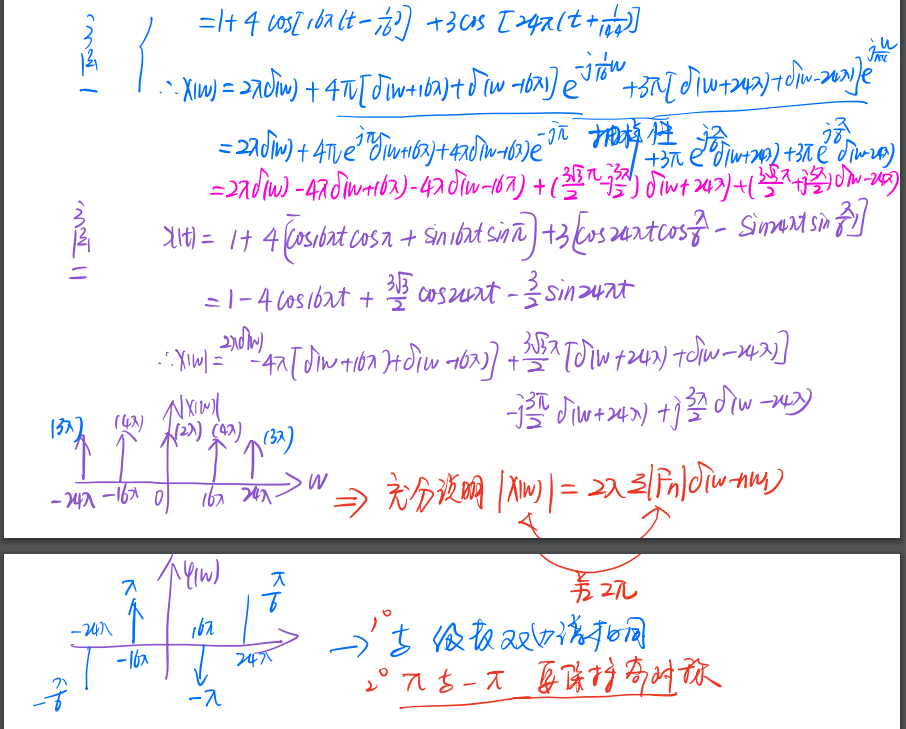 =1+4 cos[16π(t-1/16)] +3cos [24π(t+1/144)]
法一
∴X(w)=2πδ(w)+4π[δ(w+16π)+δ(w-16π)]e^{-j\frac{1}{16}w} +3π[δ(w+24π)+δ(w-24π)]e^{j\frac{w}{144}}
=2πδ(w)+4πe^{jπ}δ(w+16π)+4πδ(w-16π)e^{-jπ} 抽样性 +3πe^{-j\frac{π}{6}}δ(w+24π)+3πe^{j\frac{π}{6}}δ(w-24π)
=2πδ(w)-4πδ(w+16π)-4πδ(w-16π)+(\frac{3\sqrt{3}}{2}π-j\frac{3π}{2})δ(w+24π)+(\frac{3\sqrt{3}}{2}π+j\frac{3π}{2})δ(w-24π)
法二
x(t)= 1+4[cos16πt cosπ + sin16πt sinπ]+3[cos24πt cos\frac{π}{6} - sin24πt sin\frac{π}{6}]
=1-4cos16πt + \frac{3\sqrt{3}}{2}cos24πt - \frac{3}{2}sin24πt
∴X(w)=2πδ(w)-4π[δ(w+16π)+δ(w-16π)]+\frac{3\sqrt{3}π}{2}[δ(w+24π)+δ(w-24π)]
-j\frac{3π}{2}δ(w+24π)+j\frac{3π}{2}δ(w-24π)
|X(w)|
(3π) (4π) (2π) (4π) (3π)
-24π -16π 0 16π 24π w
⇒ 充分说明|X(w)|=2πΣ|Fn|δ(w-nw₁)
差2π
φ(w)
π \frac{π}{6}
-24π 16π
-16π 24π
-\frac{π}{6} -π
→ 1° 与级数双边谱相同
2° π与-π 要保持奇对称